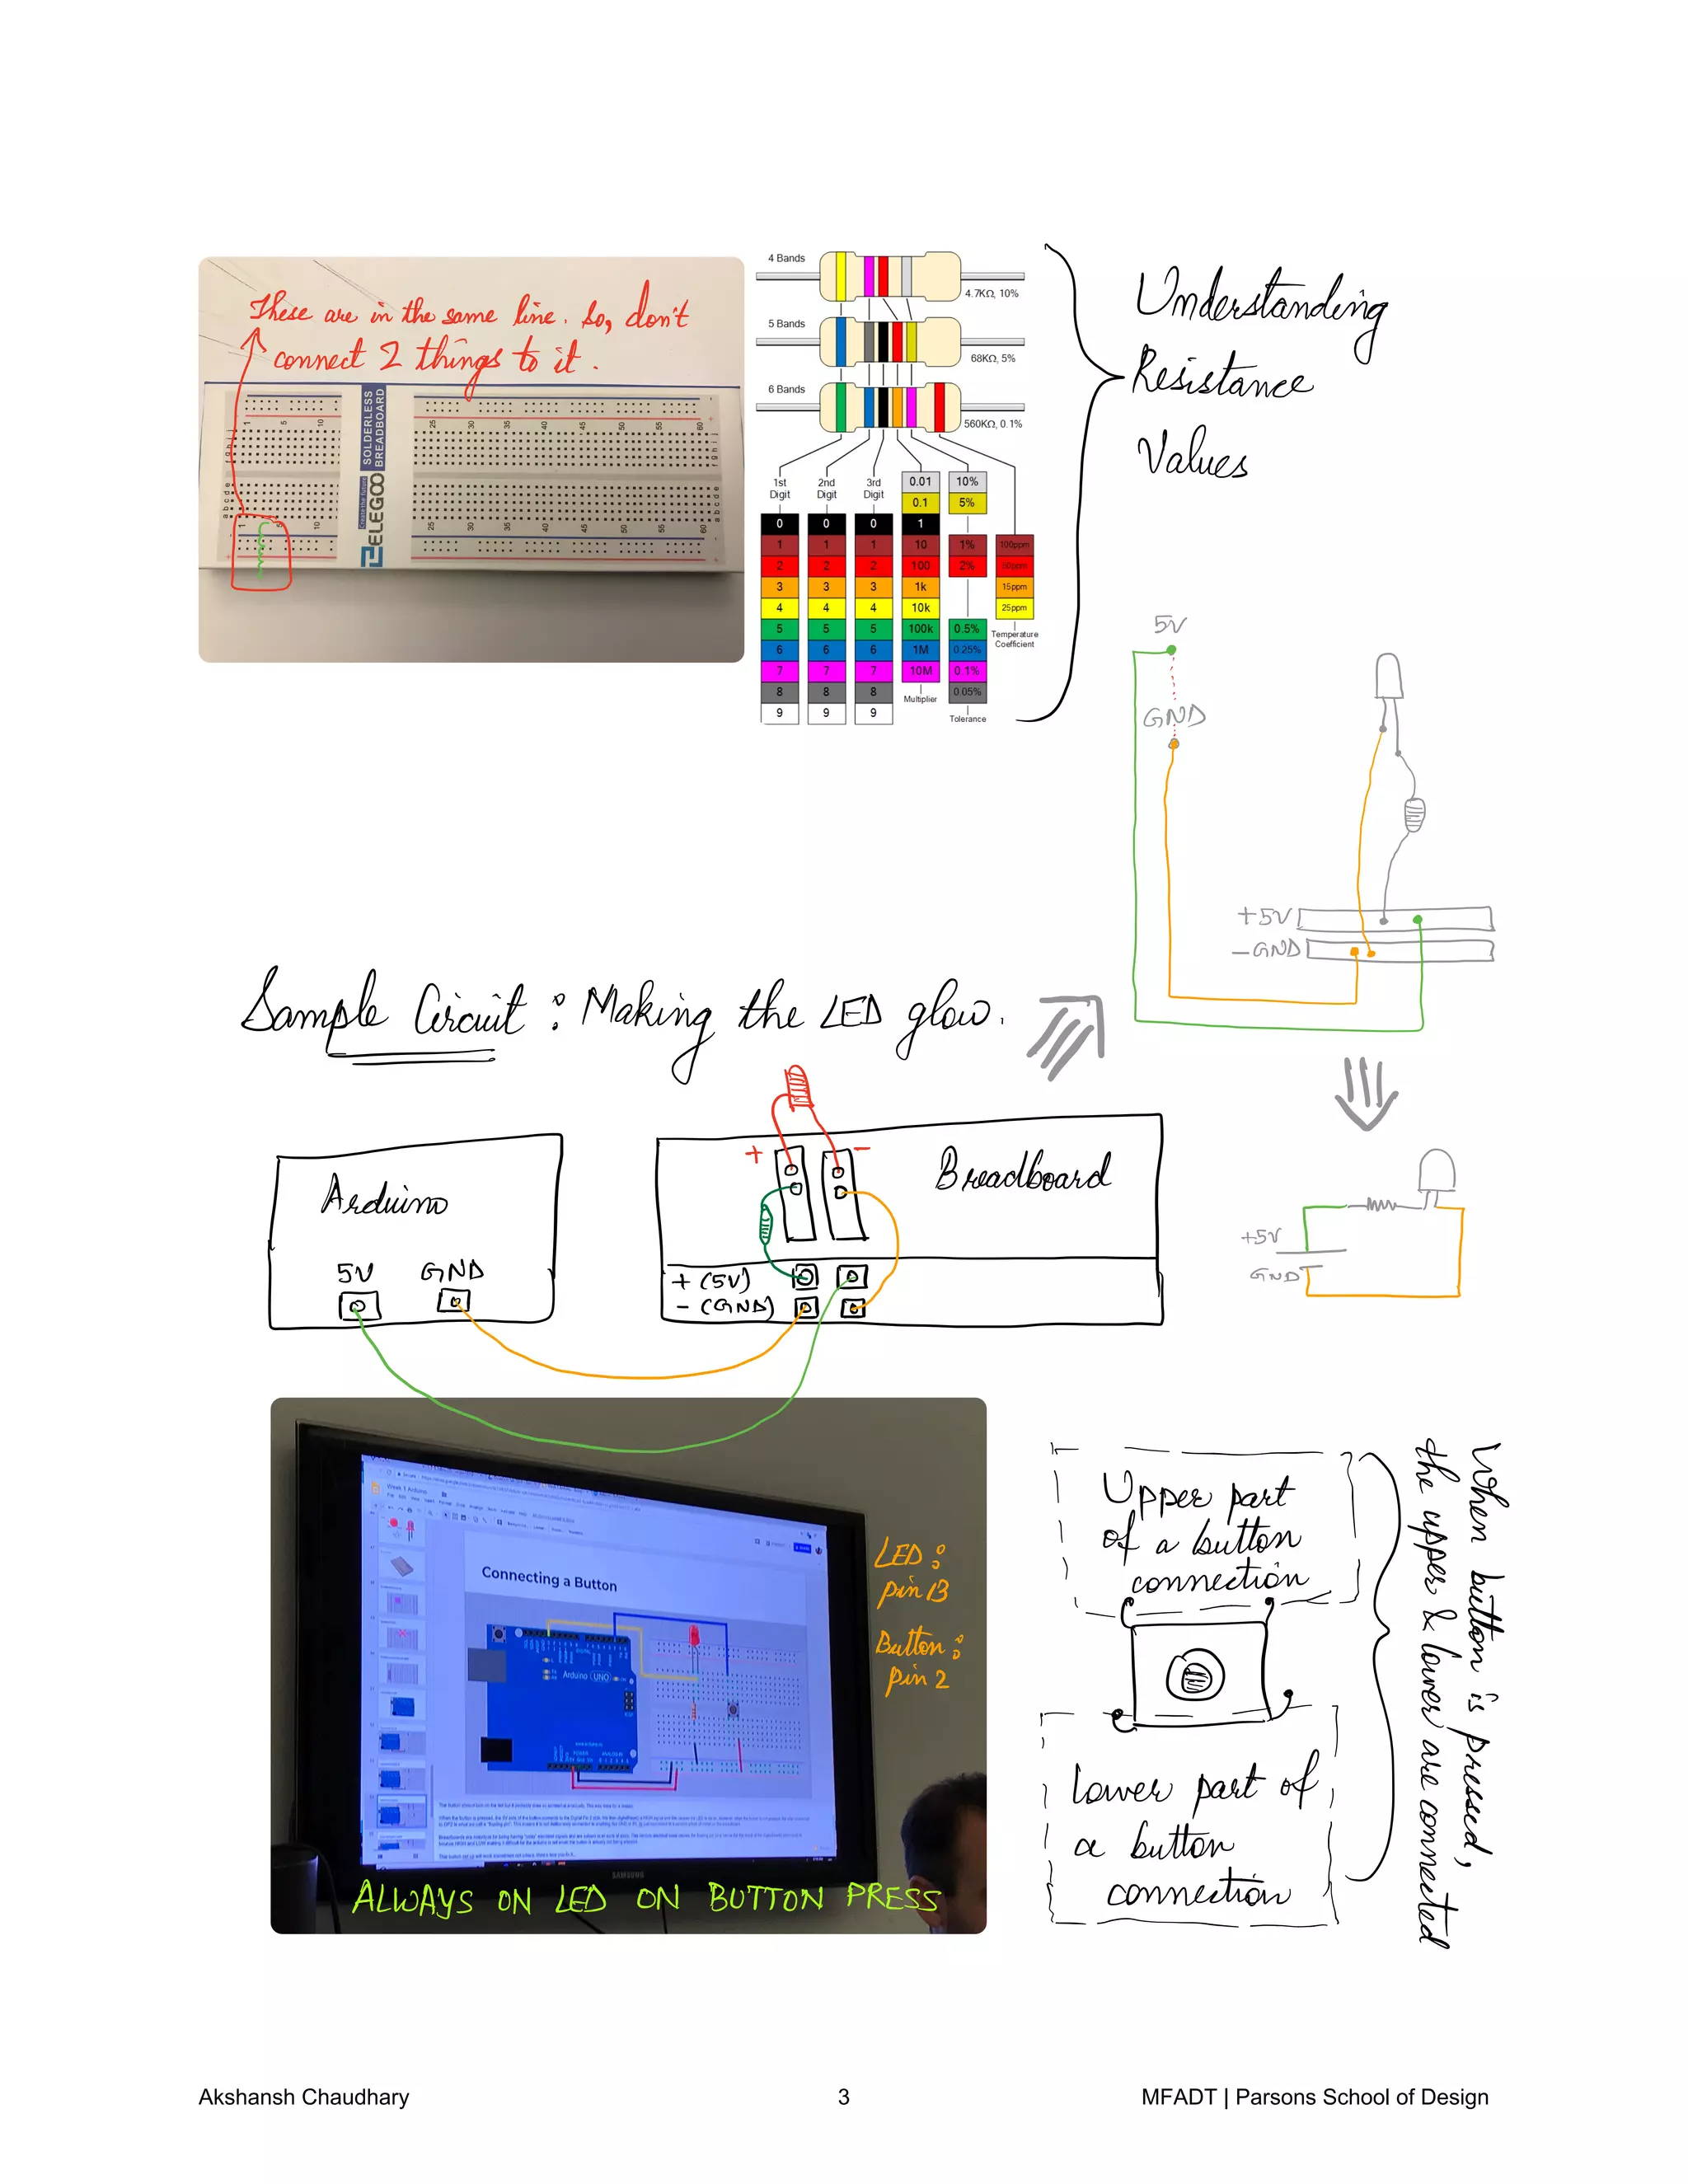 These are in the same line. So, don't
connect 2 things to it.
SOLDERLESS
BREADBOARD
ELEGOO
4 Bands
4.7KΩ, 10%
5 Bands
68KΩ, 5%
6 Bands
560KΩ, 0.1%
1st Digit
2nd Digit
3rd Digit
0.01 10%
0.1 5%
0 0 0 1
1 1 1 10 1% 100ppm
2 2 2 100 2% 50ppm
3 3 3 1k 15ppm
4 4 4 10k 25ppm
5 5 5 100k 0.5%
6 6 6 1M 0.25%
7 7 7 10M 0.1%
8 8 8 0.05%
9 9 9
Multiplier
Tolerance
Temperature
Coefficient
Understanding
Resistance
Values
5V
GND
+5V
-GND
Sample Circuit: Making the LED glow.
Arduino
5V GND
+ -
Breadboard
+ (5V)
- (GND)
+5V
GND
Connecting a Button
Arduino UNO
SAMSUNG
LED:
pin 13
Button:
pin 2
ALWAYS ON LED ON BUTTON PRESS
Upper part
of a button
connection
Lower part of
a button
connection
When button is pressed,
the upper & lower are connected
Akshansh Chaudhary
3
MFADT | Parsons School of Design